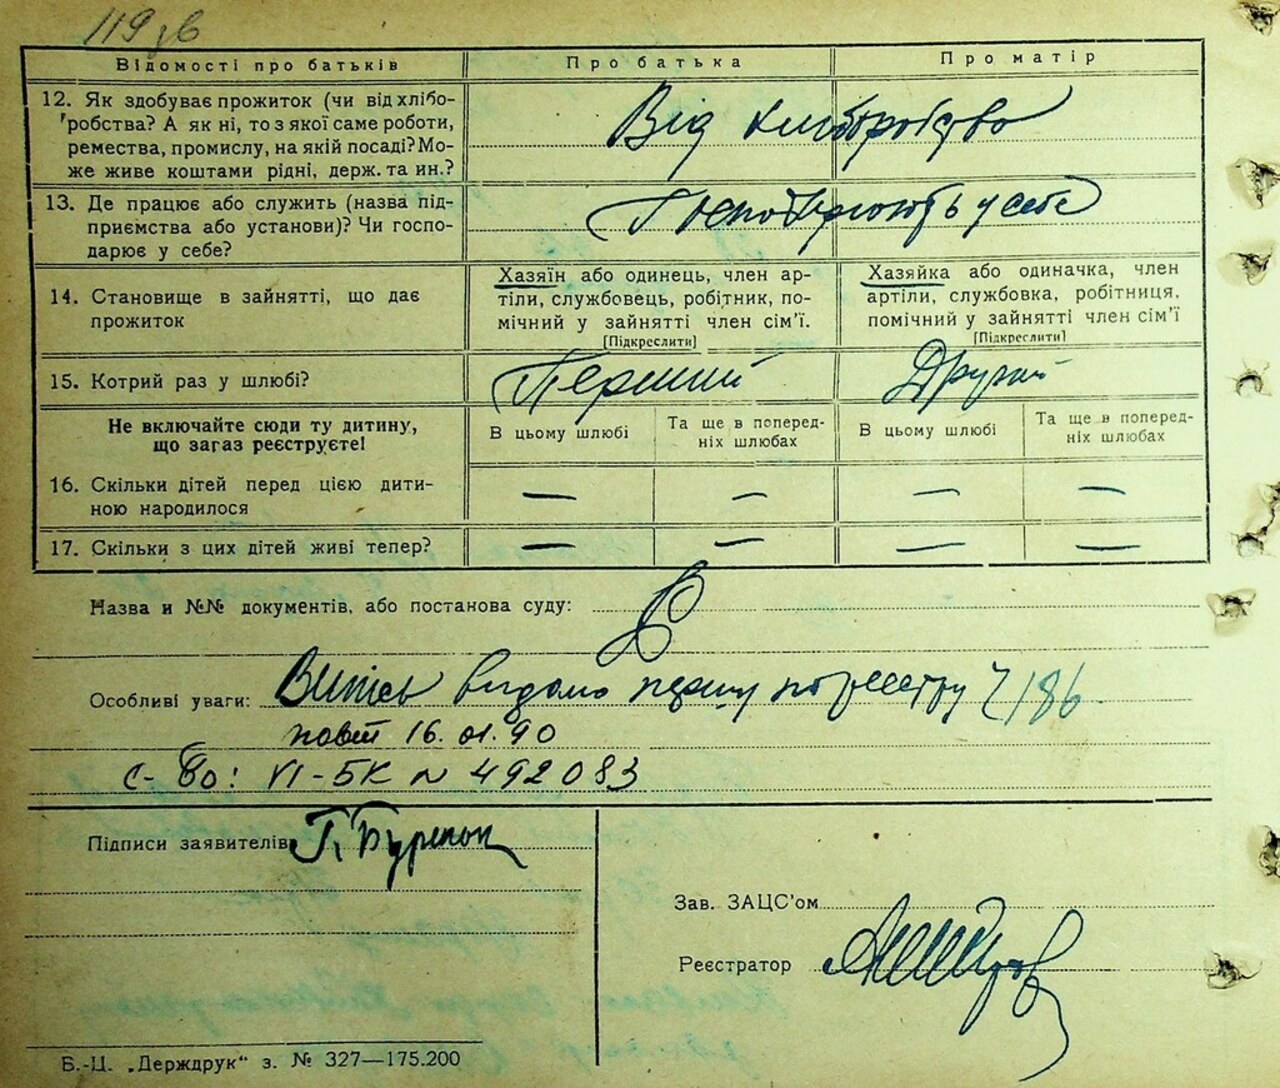 119 зв
Відомості про батьків
Про батька
Про матір
12. Як здобуває прожиток (чи від хлібо-
робства? А як ні, то з якої саме роботи,
ремества, промислу, на якій посаді? Мо-
же живе коштами рідні, держ. та ин.?
Від хліборобства
13. Де працює або служить (назва під-
приємства або установи)? Чи госпо-
дарює у себе?
Господарюють у себе
14. Становище в зайнятті, що дає
прожиток
Хазяїн або одинець, член ар-
тіли, службовець, робітник, по-
мічний у зайнятті член сім'ї.
[Підкреслити]
Хазяйка або одиначка, член
артіли, службовка, робітниця,
помічний у зайнятті член сім'ї
[Підкреслити]
15. Котрий раз у шлюбі?
Перший
Другий
Не включайте сюди ту дитину,
що загаз реєструєте!
В цьому шлюбі
Та ще в поперед-
ніх шлюбах
В цьому шлюбі
Та ще в поперед-
ніх шлюбах
16. Скільки дітей перед цією дити-
ною народилося
— — — —
17. Скільки з цих дітей живі тепер?
— — — —
Назва и №№ документів, або постанова суду:
Особливі уваги: Витяг видано першу по реєстру 186
повт 16.01.90
с-во: VI-БК № 492083
Підписи заявителів
Зав. ЗАЦС'ом
Реєстратор
Б.-Ц. „Держдрук" з. № 327—175.200